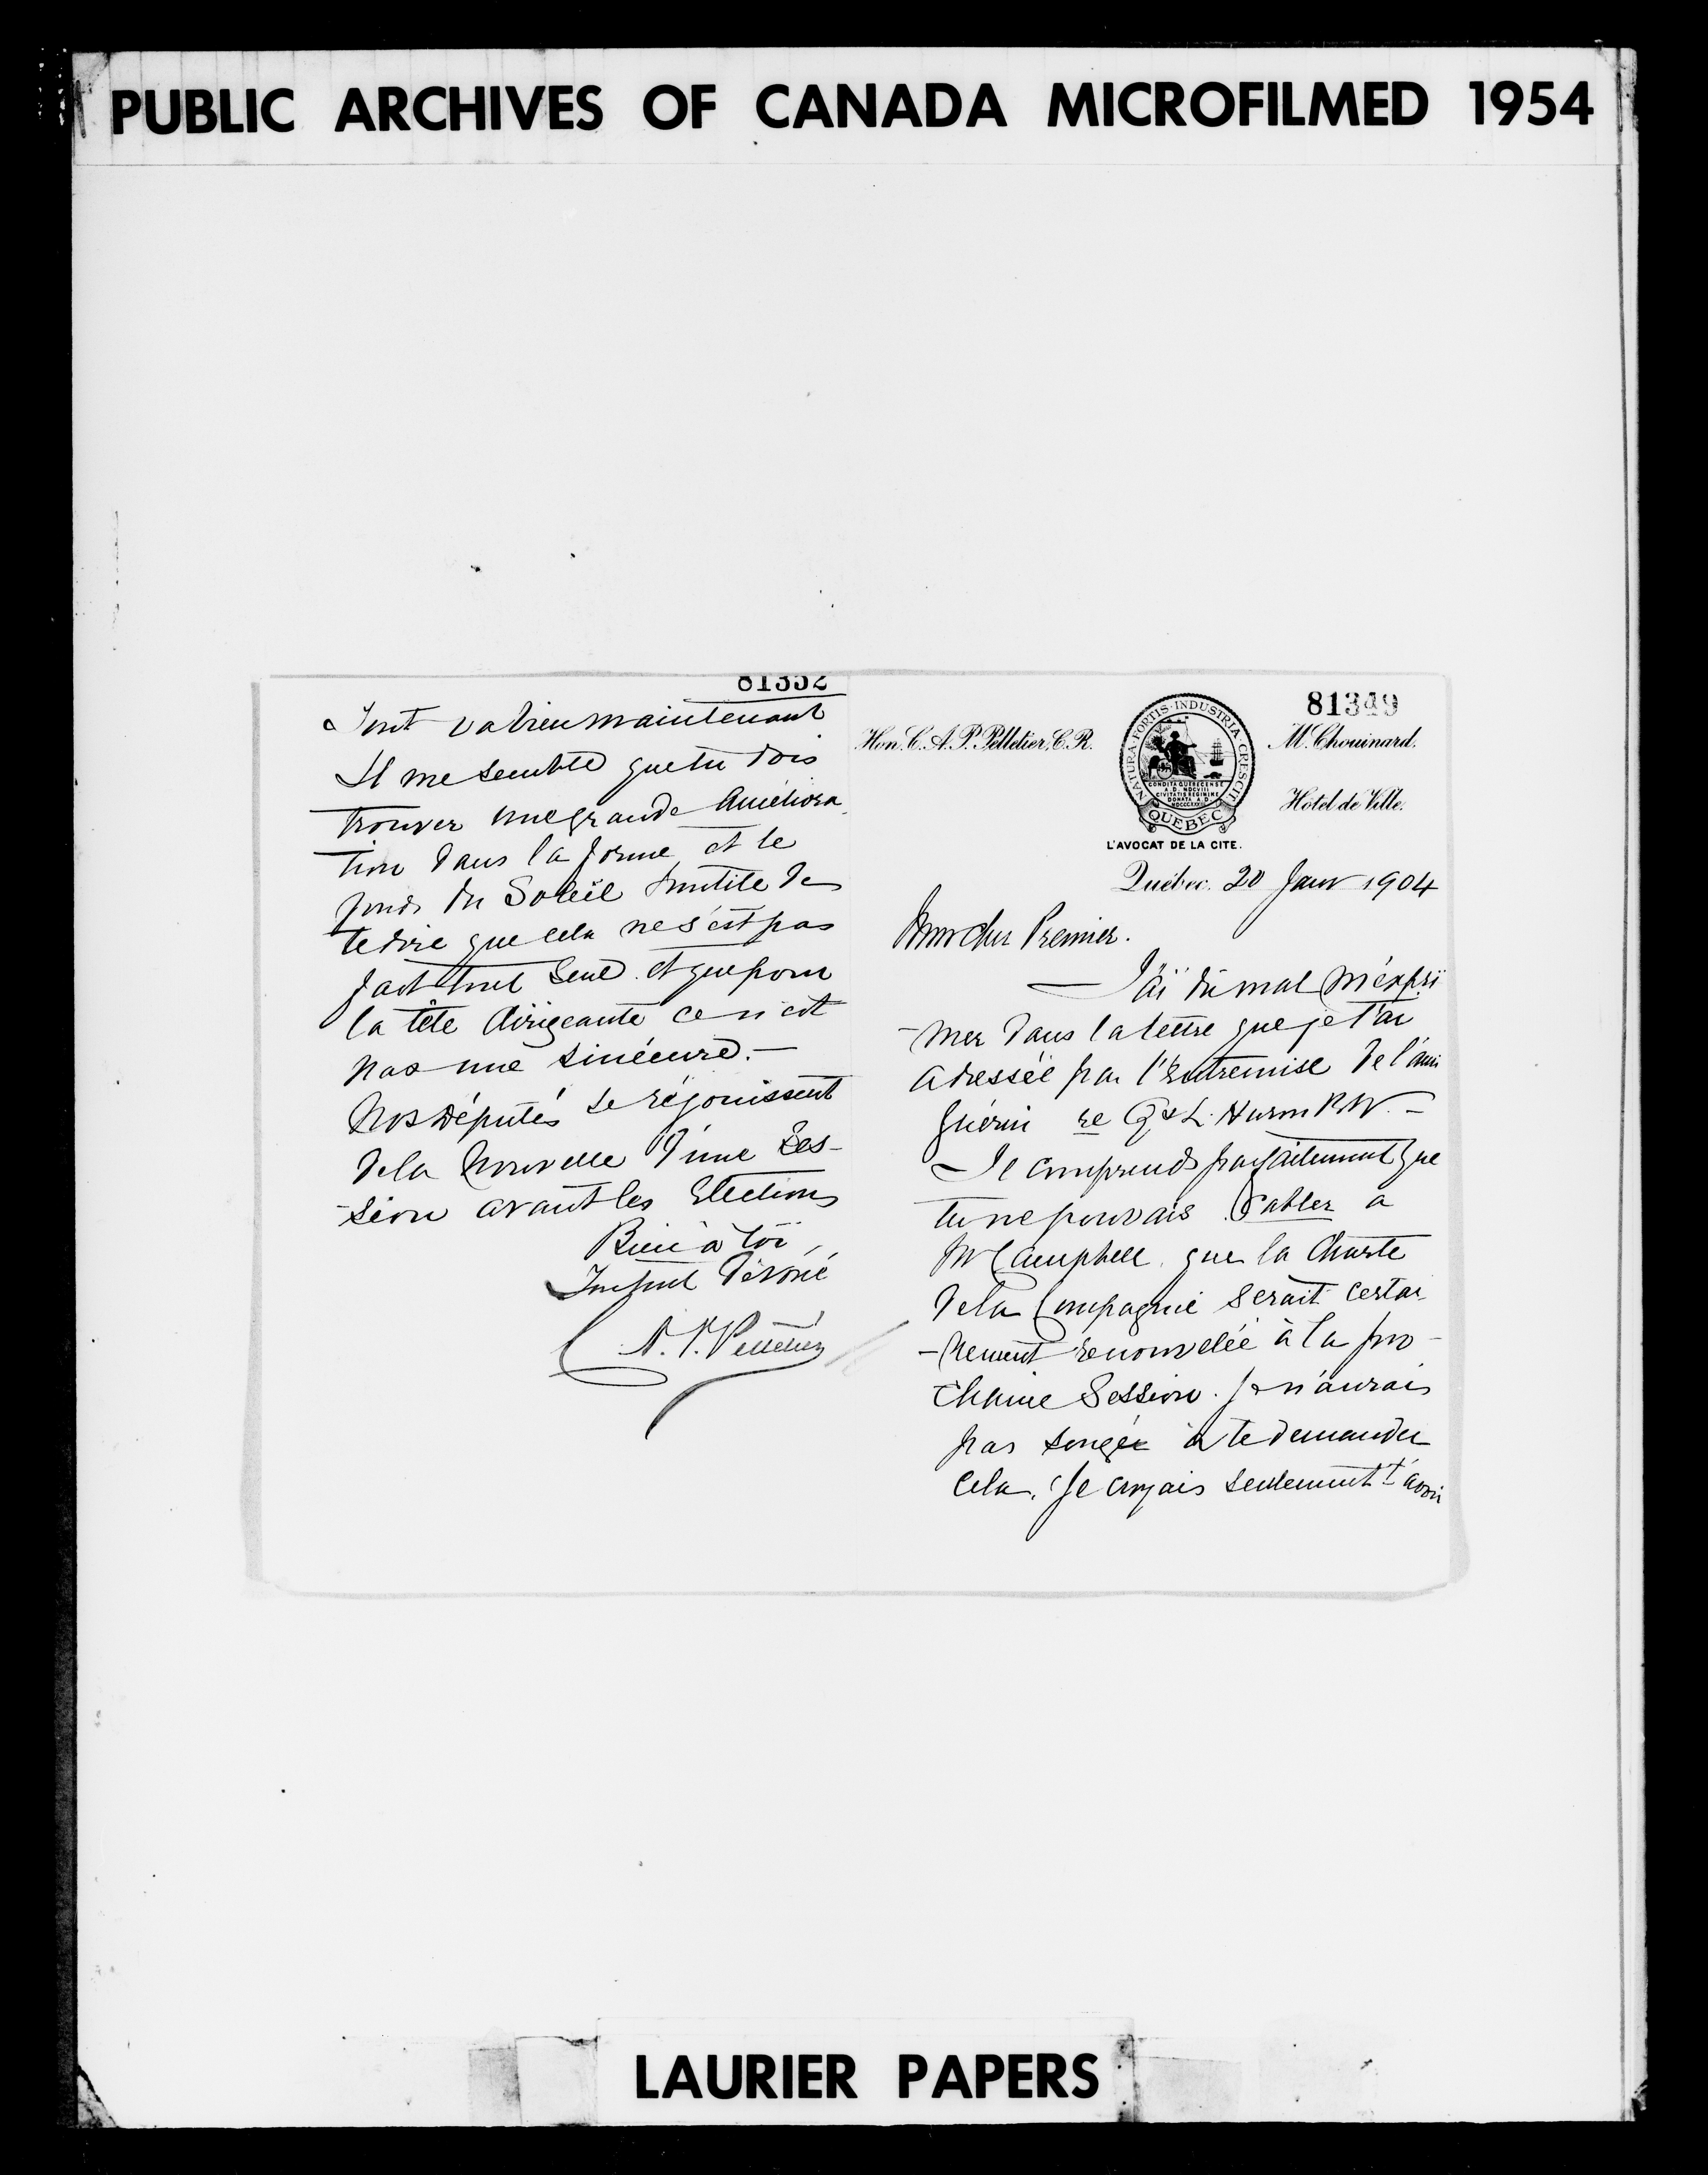 PUBLIC ARCHIVES OF CANADA MICROFILMED 1954
81352
Tout va bien maintenant
Il me semble que tu dois
trouver une grande Améliora
tion dans la forme et le
fonds du Soleil Inutile de
te dire que cela ne s'est pas
fait tout seul et que pour
la tête dirigeante ce n'est
pas une sinécure.—
Nos députés se réjouissent
de la Nouvelle d'une Ses-
-sion avant les Elections
Bien à toi,
Ton tout dévoué
C. A. P. Pelletier
81349
Hon. C. A. P. Pelletier, C. R.
M. Chouinard.
Hôtel de Ville.
NATURA·FORTIS·INDUSTRIA·CRESCIT
CONDITA QUEBECENSE
A.D. MDCVIII
CIVITATIS REGIMINE
DONATA A.D.
QUEBEC
L'AVOCAT DE LA CITE.
Québec, 20 Janv 1904
Mon cher Premier.
— J'ai dû mal m'expri
-mer dans la lettre que je t'ai
adressée par l'Entremise de l'ami
Guérin re Q & L. Huron RW.—
Je comprends parfaitement que
tu ne pouvais cabler a
Mr Campbell que la Charte
de la Compagnie serait certai
-nement renouvelée à la pro-
chaine Session. Je n'aurais
pas songé à te demander
cela. Je croyais seulement t'avoir
LAURIER PAPERS